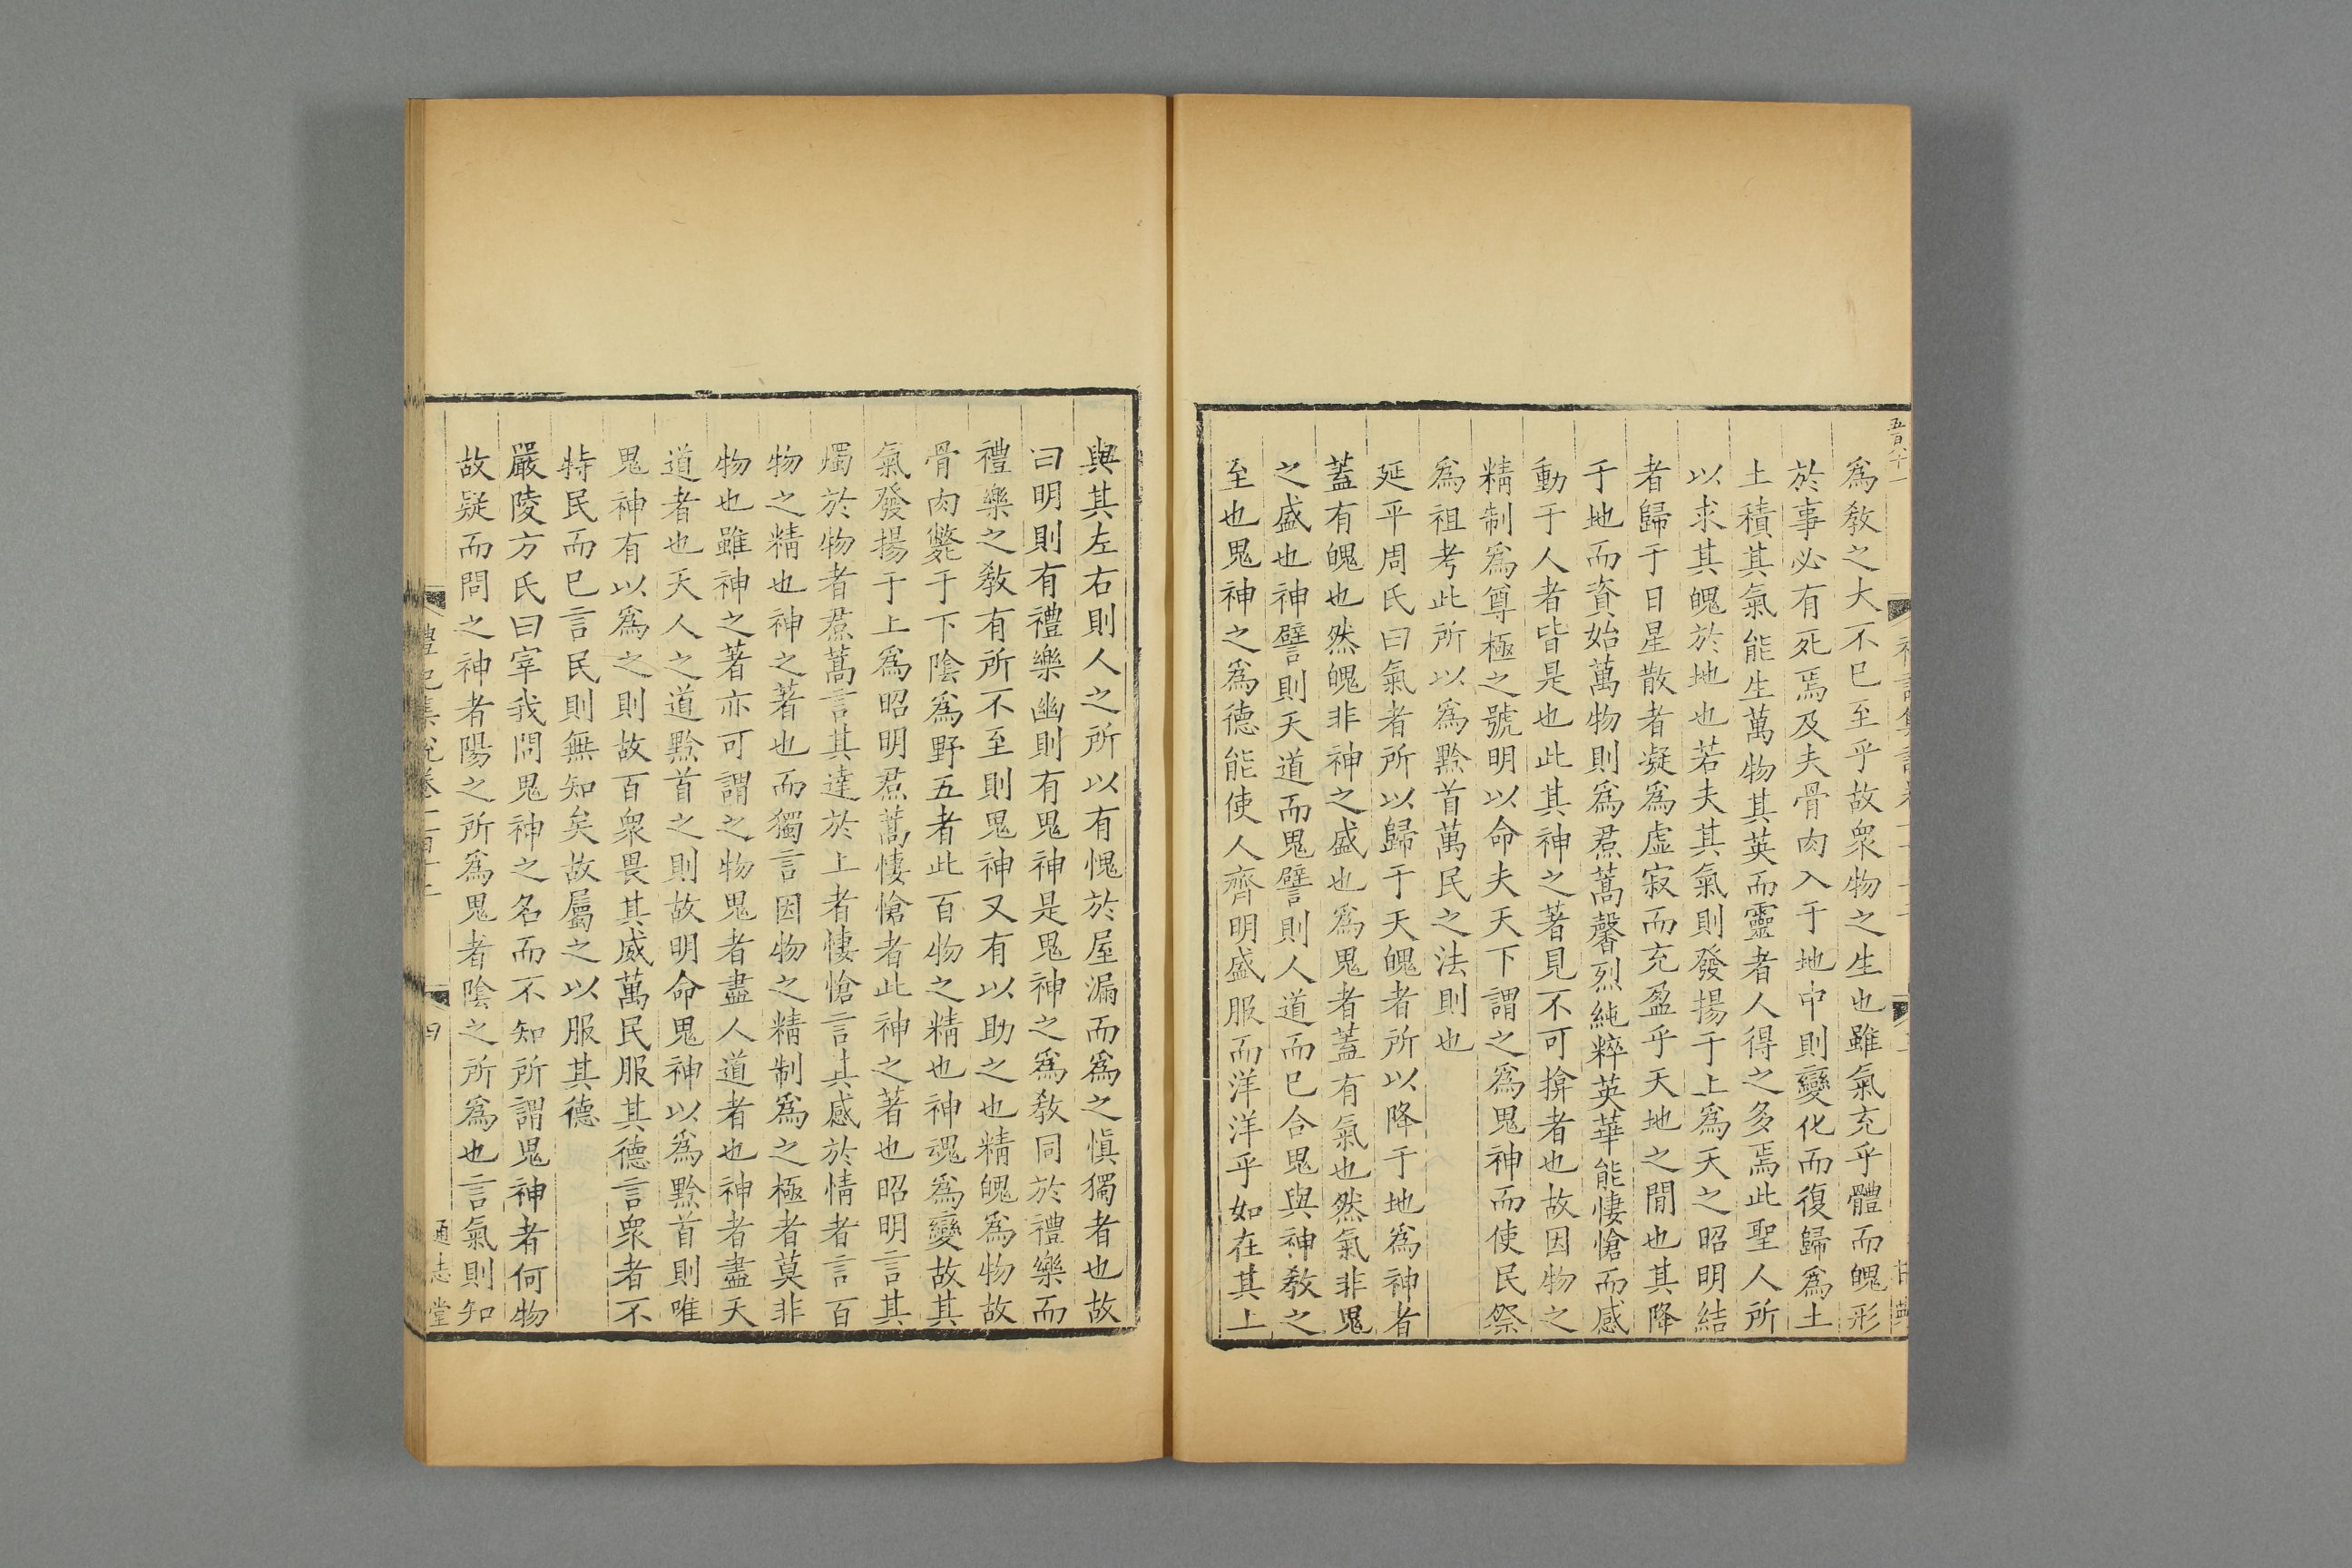 爲敎之大不已至乎故衆物之生也雖氣充乎體而魄形
於事必有死焉及夫骨肉入于地中則變化而復歸爲土
土積其氣能生萬物其英而靈者人得之多焉此聖人所
以求其魄於地也若夫其氣則發揚于上爲天之昭明結
者歸于日星散者凝爲虛寂而充盈乎天地之閒也其降
于地而資始萬物則爲焄蒿馨烈純粹英華能悽愴而感
動于人者皆是也此其神之著見不可揜者也故因物之
精制爲尊極之號明以命夫天下謂之爲鬼神而使民祭
爲祖考此所以爲黔首萬民之法則也
延平周氏曰氣者所以歸于天魄者所以降于地爲神者
蓋有魄也然魄非神之盛也爲鬼者蓋有氣也然氣非鬼
之盛也神譬則天道而鬼譬則人道而已合鬼與神敎之
至也鬼神之爲德能使人齊明盛服而洋洋乎如在其上
與其左右則人之所以有愧於屋漏而爲之愼獨者也故
曰明則有禮樂幽則有鬼神是鬼神之爲敎同於禮樂而
禮樂之敎有所不至則鬼神又有以助之也精魄爲物故
骨肉斃于下陰爲野五者此百物之精也神魂爲變故其
氣發揚于上爲昭明焄蒿悽愴者此神之著也昭明言其
燭於物者焄蒿言其達於上者悽愴言其感於情者言百
物之精也神之著也而獨言因物之精制爲之極者莫非
物也雖神之著亦可謂之物鬼者盡人道者也神者盡天
道者也天人之道黔首之則故明命鬼神以爲黔首則唯
鬼神有以爲之則故百衆畏其威萬民服其德言衆者不
特民而已言民則無知矣故屬之以服其德
嚴陵方氏曰宰我問鬼神之名而不知所謂鬼神者何物
故疑而問之神者陽之所爲鬼者陰之所爲也言氣則知
通志堂